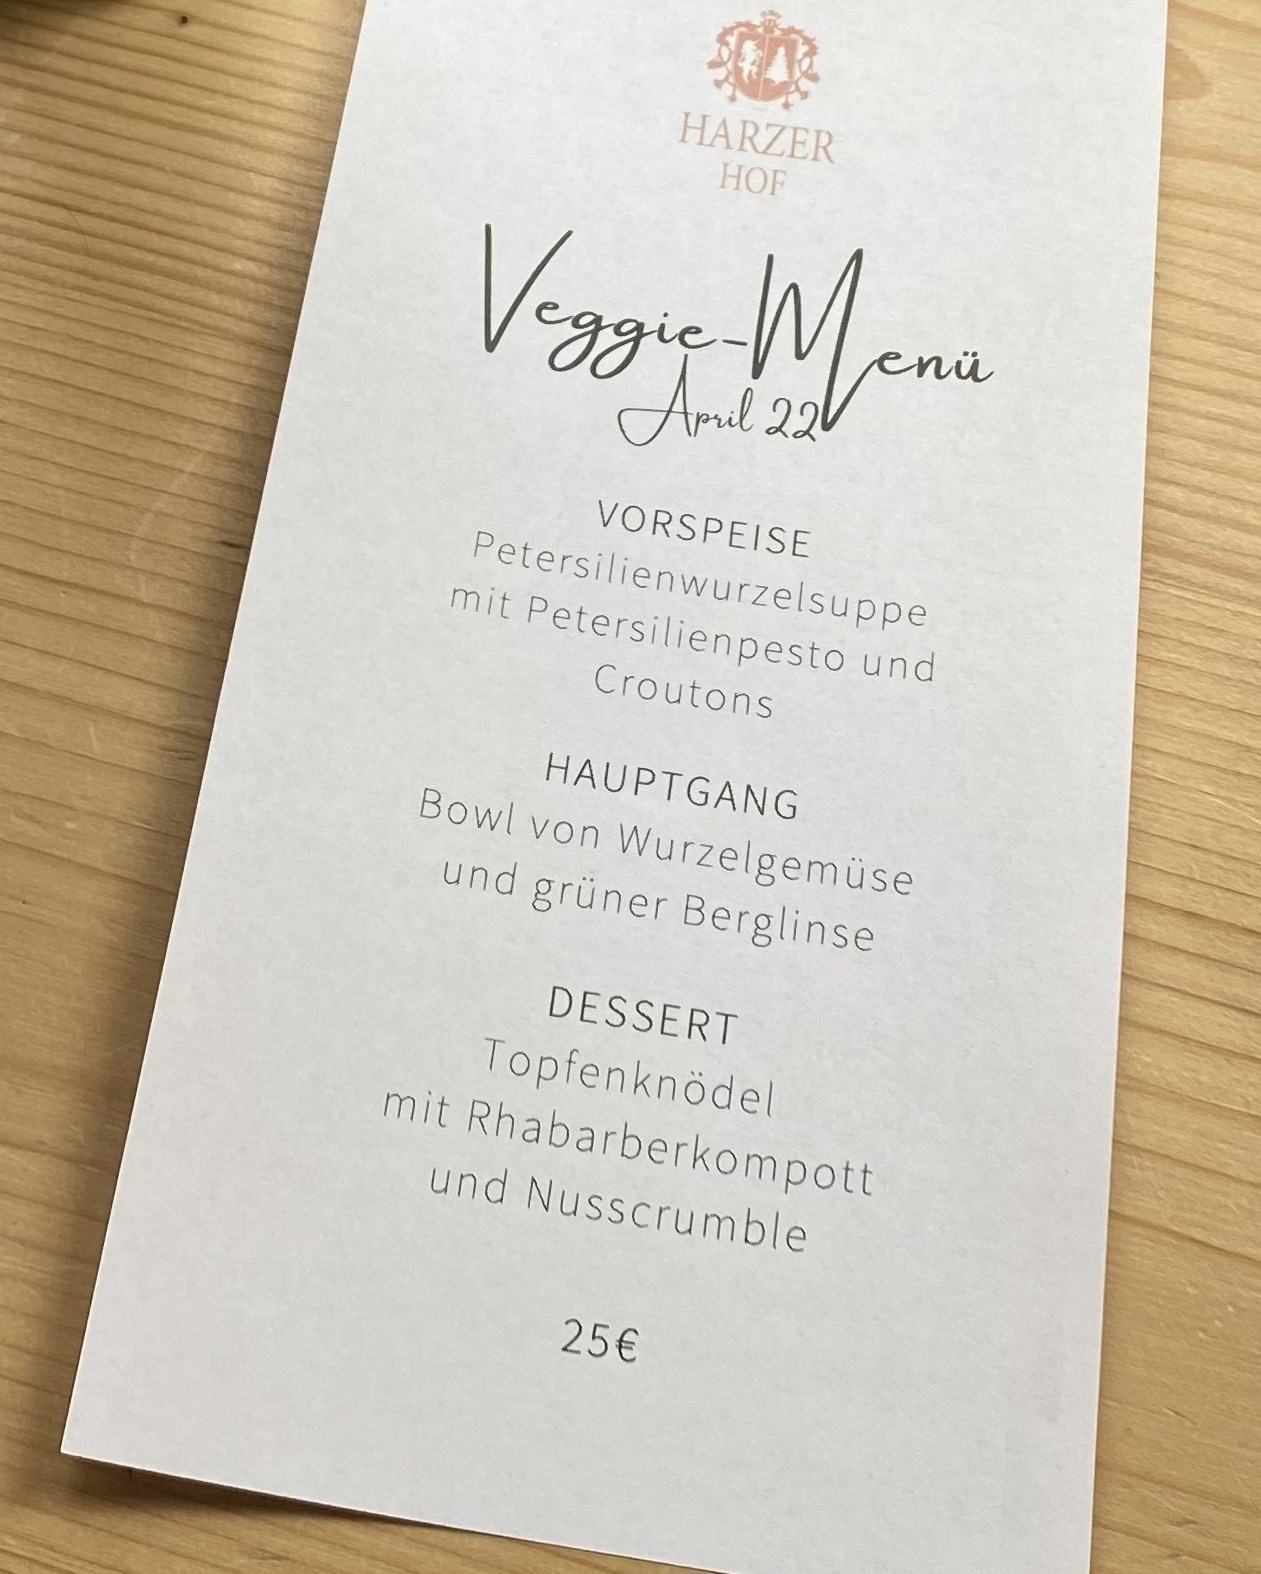 HARZER
HOF
Veggie-Menü
April 22
VORSPEISE
Petersilienwurzelsuppe
mit Petersilienpesto und
Croutons
HAUPTGANG
Bowl von Wurzelgemüse
und grüner Berglinse
DESSERT
Topfenknödel
mit Rhabarberkompott
und Nusscrumble
25€